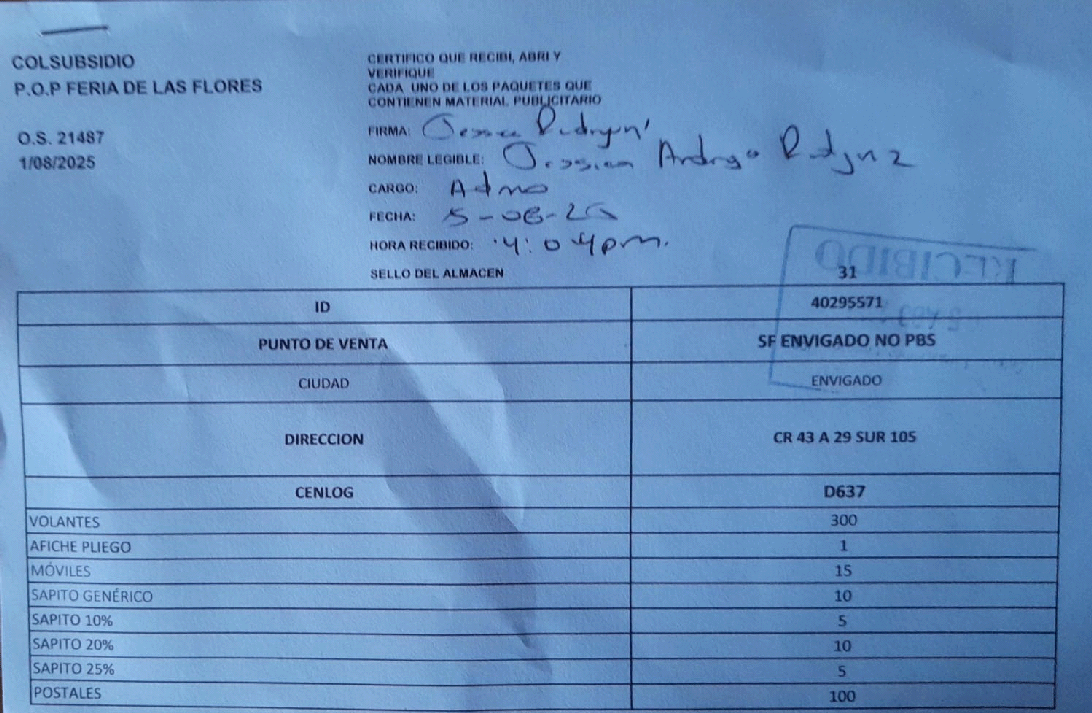 COLSUBSIDIO
P.O.P FERIA DE LAS FLORES
O.S. 21487
1/08/2025
CERTIFICO QUE RECIBI, ABRI Y
VERIFIQUE
CADA UNO DE LOS PAQUETES QUE
CONTIENEN MATERIAL PUBLICITARIO
FIRMA:
NOMBRE LEGIBLE: Jessica
CARGO: Admo
FECHA: 5-08-25
HORA RECIBIDO: 4:04pm.
SELLO DEL ALMACEN 31
RECIBIDO
ID 40295571
PUNTO DE VENTA SF ENVIGADO NO PBS
CIUDAD ENVIGADO
DIRECCION CR 43 A 29 SUR 105
CENLOG D637
VOLANTES 300
AFICHE PLIEGO 1
MÓVILES 15
SAPITO GENÉRICO 10
SAPITO 10% 5
SAPITO 20% 10
SAPITO 25% 5
POSTALES 100